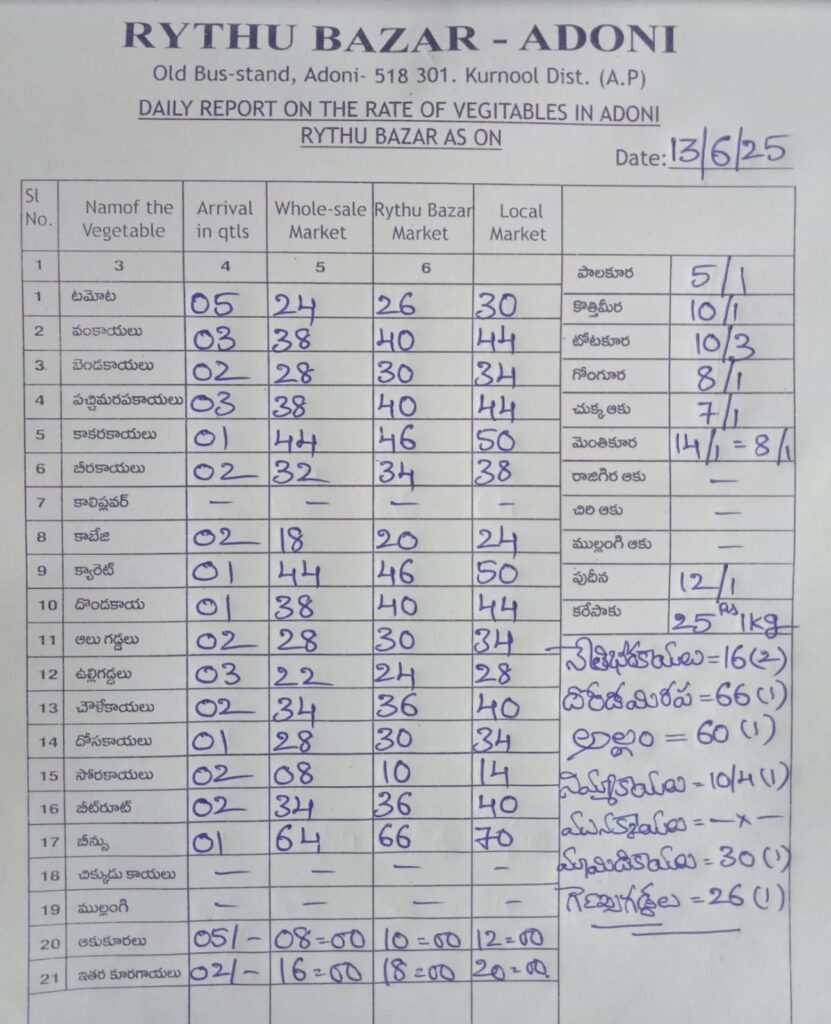 RYTHU BAZAR - ADONI
Old Bus-stand, Adoni- 518 301. Kurnool Dist. (A.P)
DAILY REPORT ON THE RATE OF VEGITABLES IN ADONI
RYTHU BAZAR AS ON
Date: 13/6/25
Sl No. Namof the Vegetable Arrival in qtls Whole-sale Market Rythu Bazar Market Local Market
1 3 4 5 6
1 టమోట 05 24 26 30
2 వంకాయలు 03 38 40 44
3 బెండకాయలు 02 28 30 34
4 పచ్చిమిరపకాయలు 03 38 40 44
5 కాకరకాయలు 01 44 46 50
6 బీరకాయలు 02 32 34 38
7 కాలిఫ్లవర్ — — — —
8 కాబేజి 02 18 20 24
9 క్యారెట్ 01 44 46 50
10 దొండకాయ 01 38 40 44
11 ఆలు గడ్డలు 02 28 30 34
12 ఉల్లిగడ్డలు 03 22 24 28
13 చౌళేకాయలు 02 34 36 40
14 దోసకాయలు 01 28 30 34
15 సోరకాయలు 02 08 10 14
16 బీట్‌రూట్ 02 34 36 40
17 బీన్సు 01 64 66 70
18 చిక్కుడు కాయలు — — — —
19 ముల్లంగి — — — —
20 ఆకుకూరలు 05/- 08=00 10=00 12=00
21 ఇతర కూరగాయలు 02/- 16=00 18=00 20=00
పాలకూర 5/1
కొత్తిమీర 10/1
టోటకూర 10/3
గోంగూర 8/1
చుక్క ఆకు 7/1
మెంతికూర 14/1 = 8/1
రాజిగిర ఆకు —
చిరి ఆకు —
ముల్లంగి ఆకు —
పుదీన 12/1
కరేపాకు 25 Rs 1kg
నేతిబీరకాయలు = 16 (2)
దొడ్డమిరప = 66 (1)
అల్లం = 60 (1)
నిమ్మకాయలు = 10/4 (1)
మునకాయలు = — x —
మామిడికాయలు = 30 (1)
గెణుసుగడ్డలు = 26 (1)